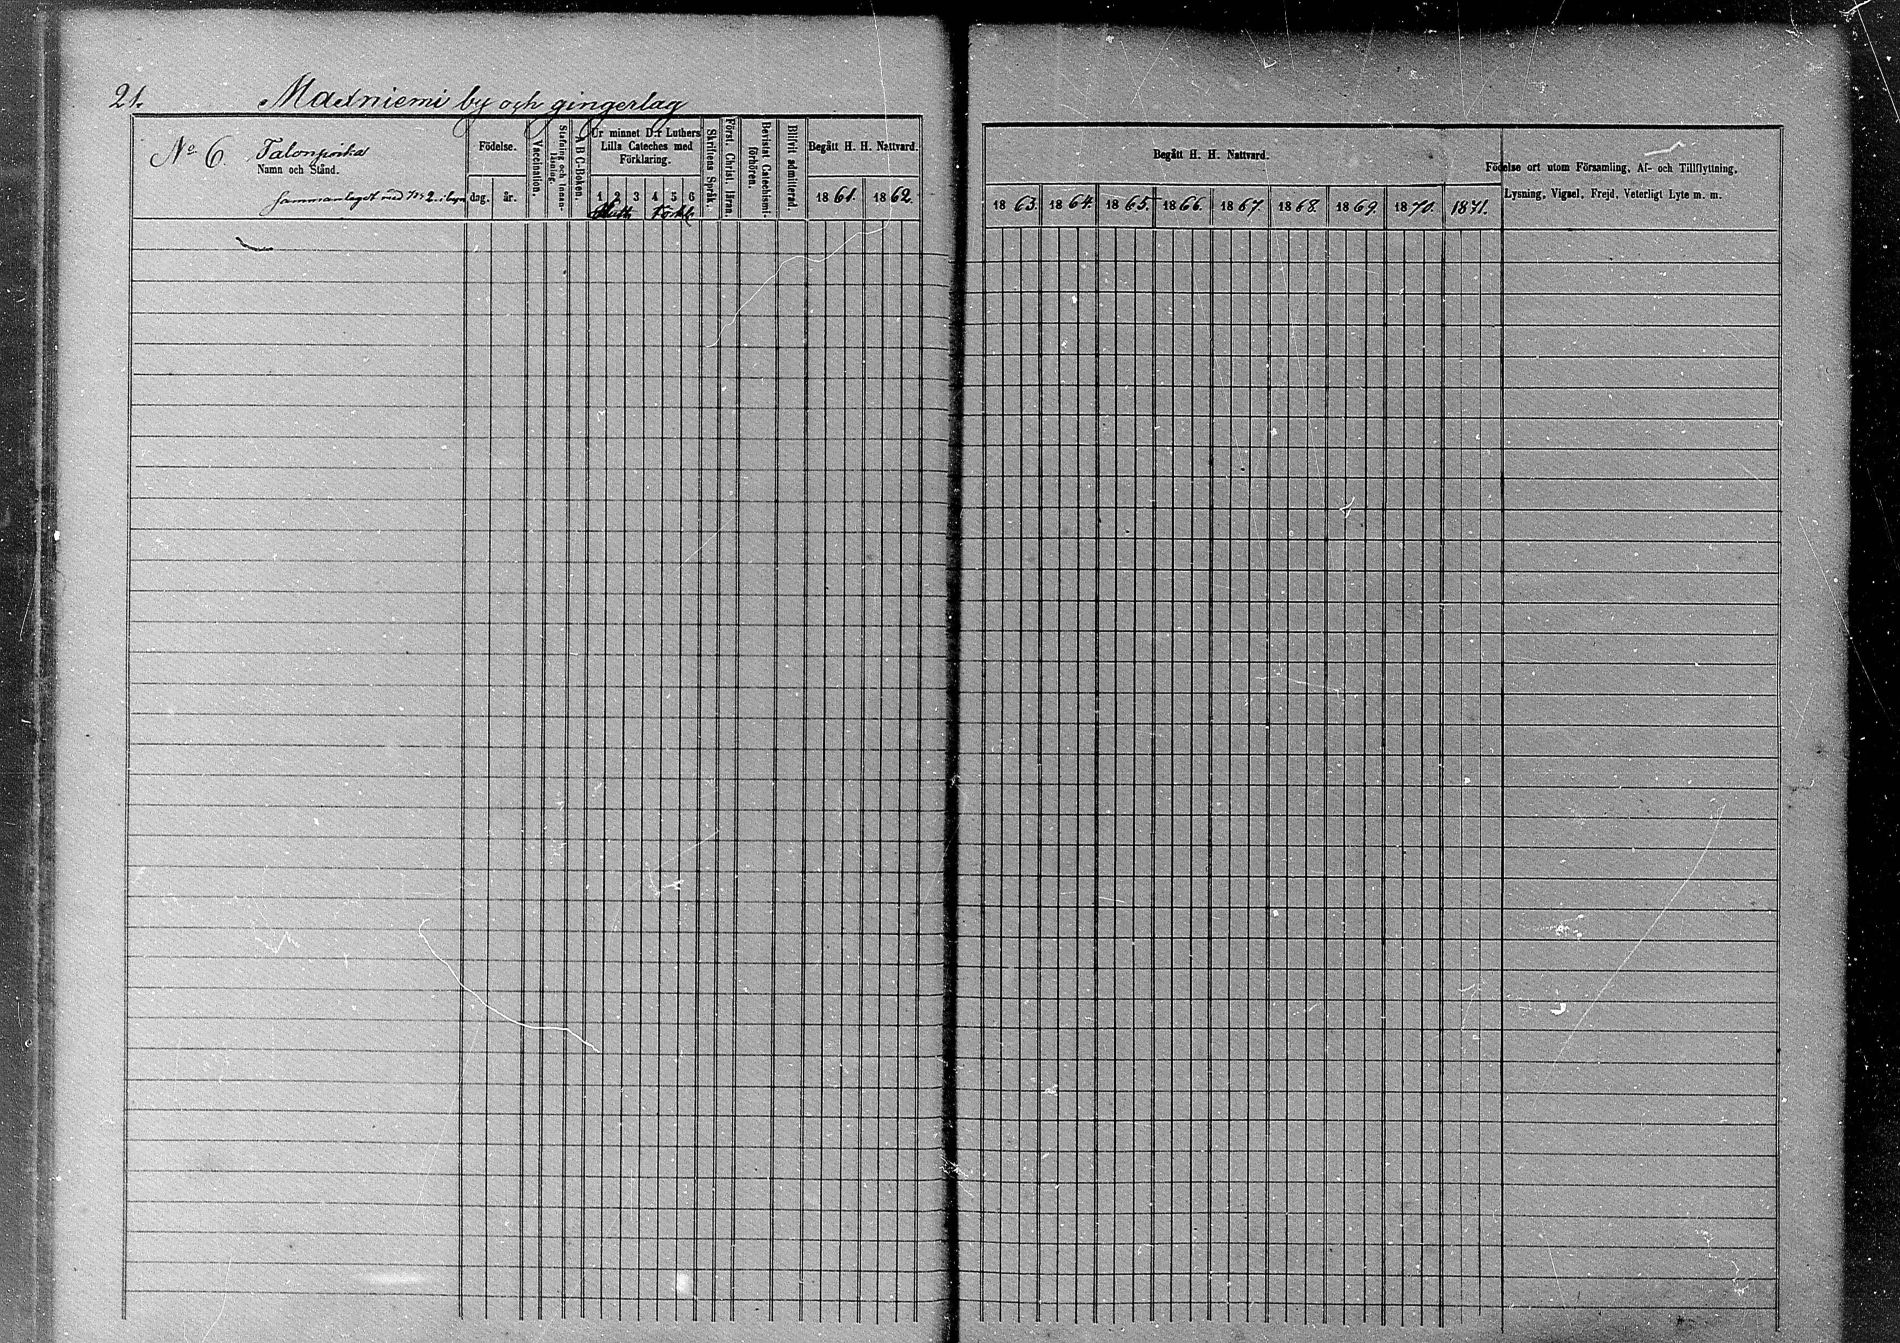 21. Maxniemi by och gingerlag
No 6. Talonpoika
Namn och Stånd.
Sammanlaget med No 2. i byn
Födelse.
dag. år.
Vaccination.
Stafning och Innan-
läsning.
A B C-Boken.
Ur minnet D:r Luthers
Lilla Cateches med
Förklaring.
1 2 3 4 5 6
Förkl.
Skriftens Språk.
Först. Christ. läran.
Bevistat Catechismi-
förhören.
Blifvit admitterad.
Begått H. H. Nattvard.
1861. 1862.
Begått H. H. Nattvard.
1863. 1864. 1865. 1866. 1867. 1868. 1869. 1870. 1871.
Födelse ort utom Församling, Af- och Tillflyttning,
Lysning, Vigsel, Frejd, Veterligt Lyte m. m.